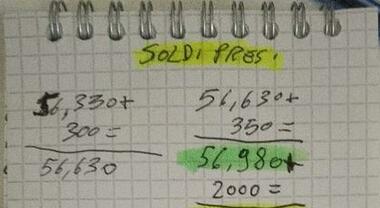 SOLDI PRES.
56,330+
300=
56,630
56,630+
350=
56,980+
2000=